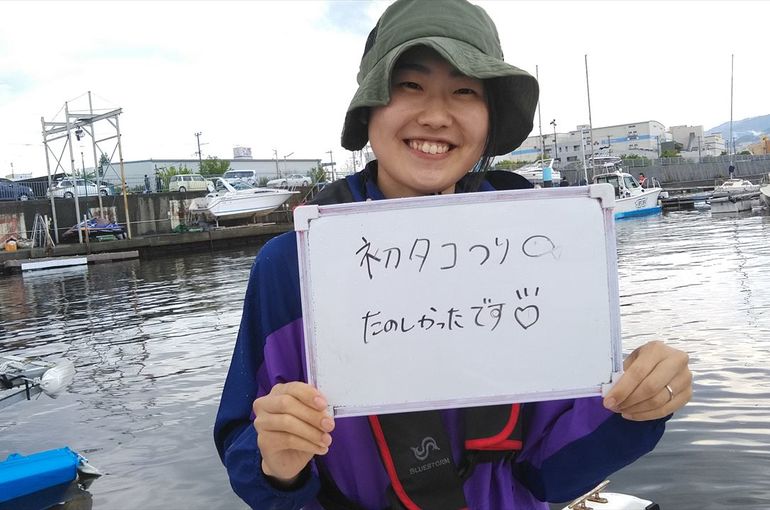 初タコつり
たのしかったです♡
BLUESTORM